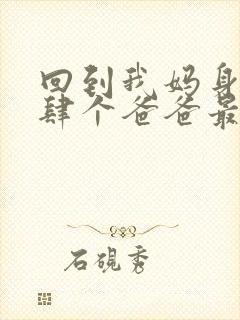 回到我妈身
肆个爸爸最
石砚秀